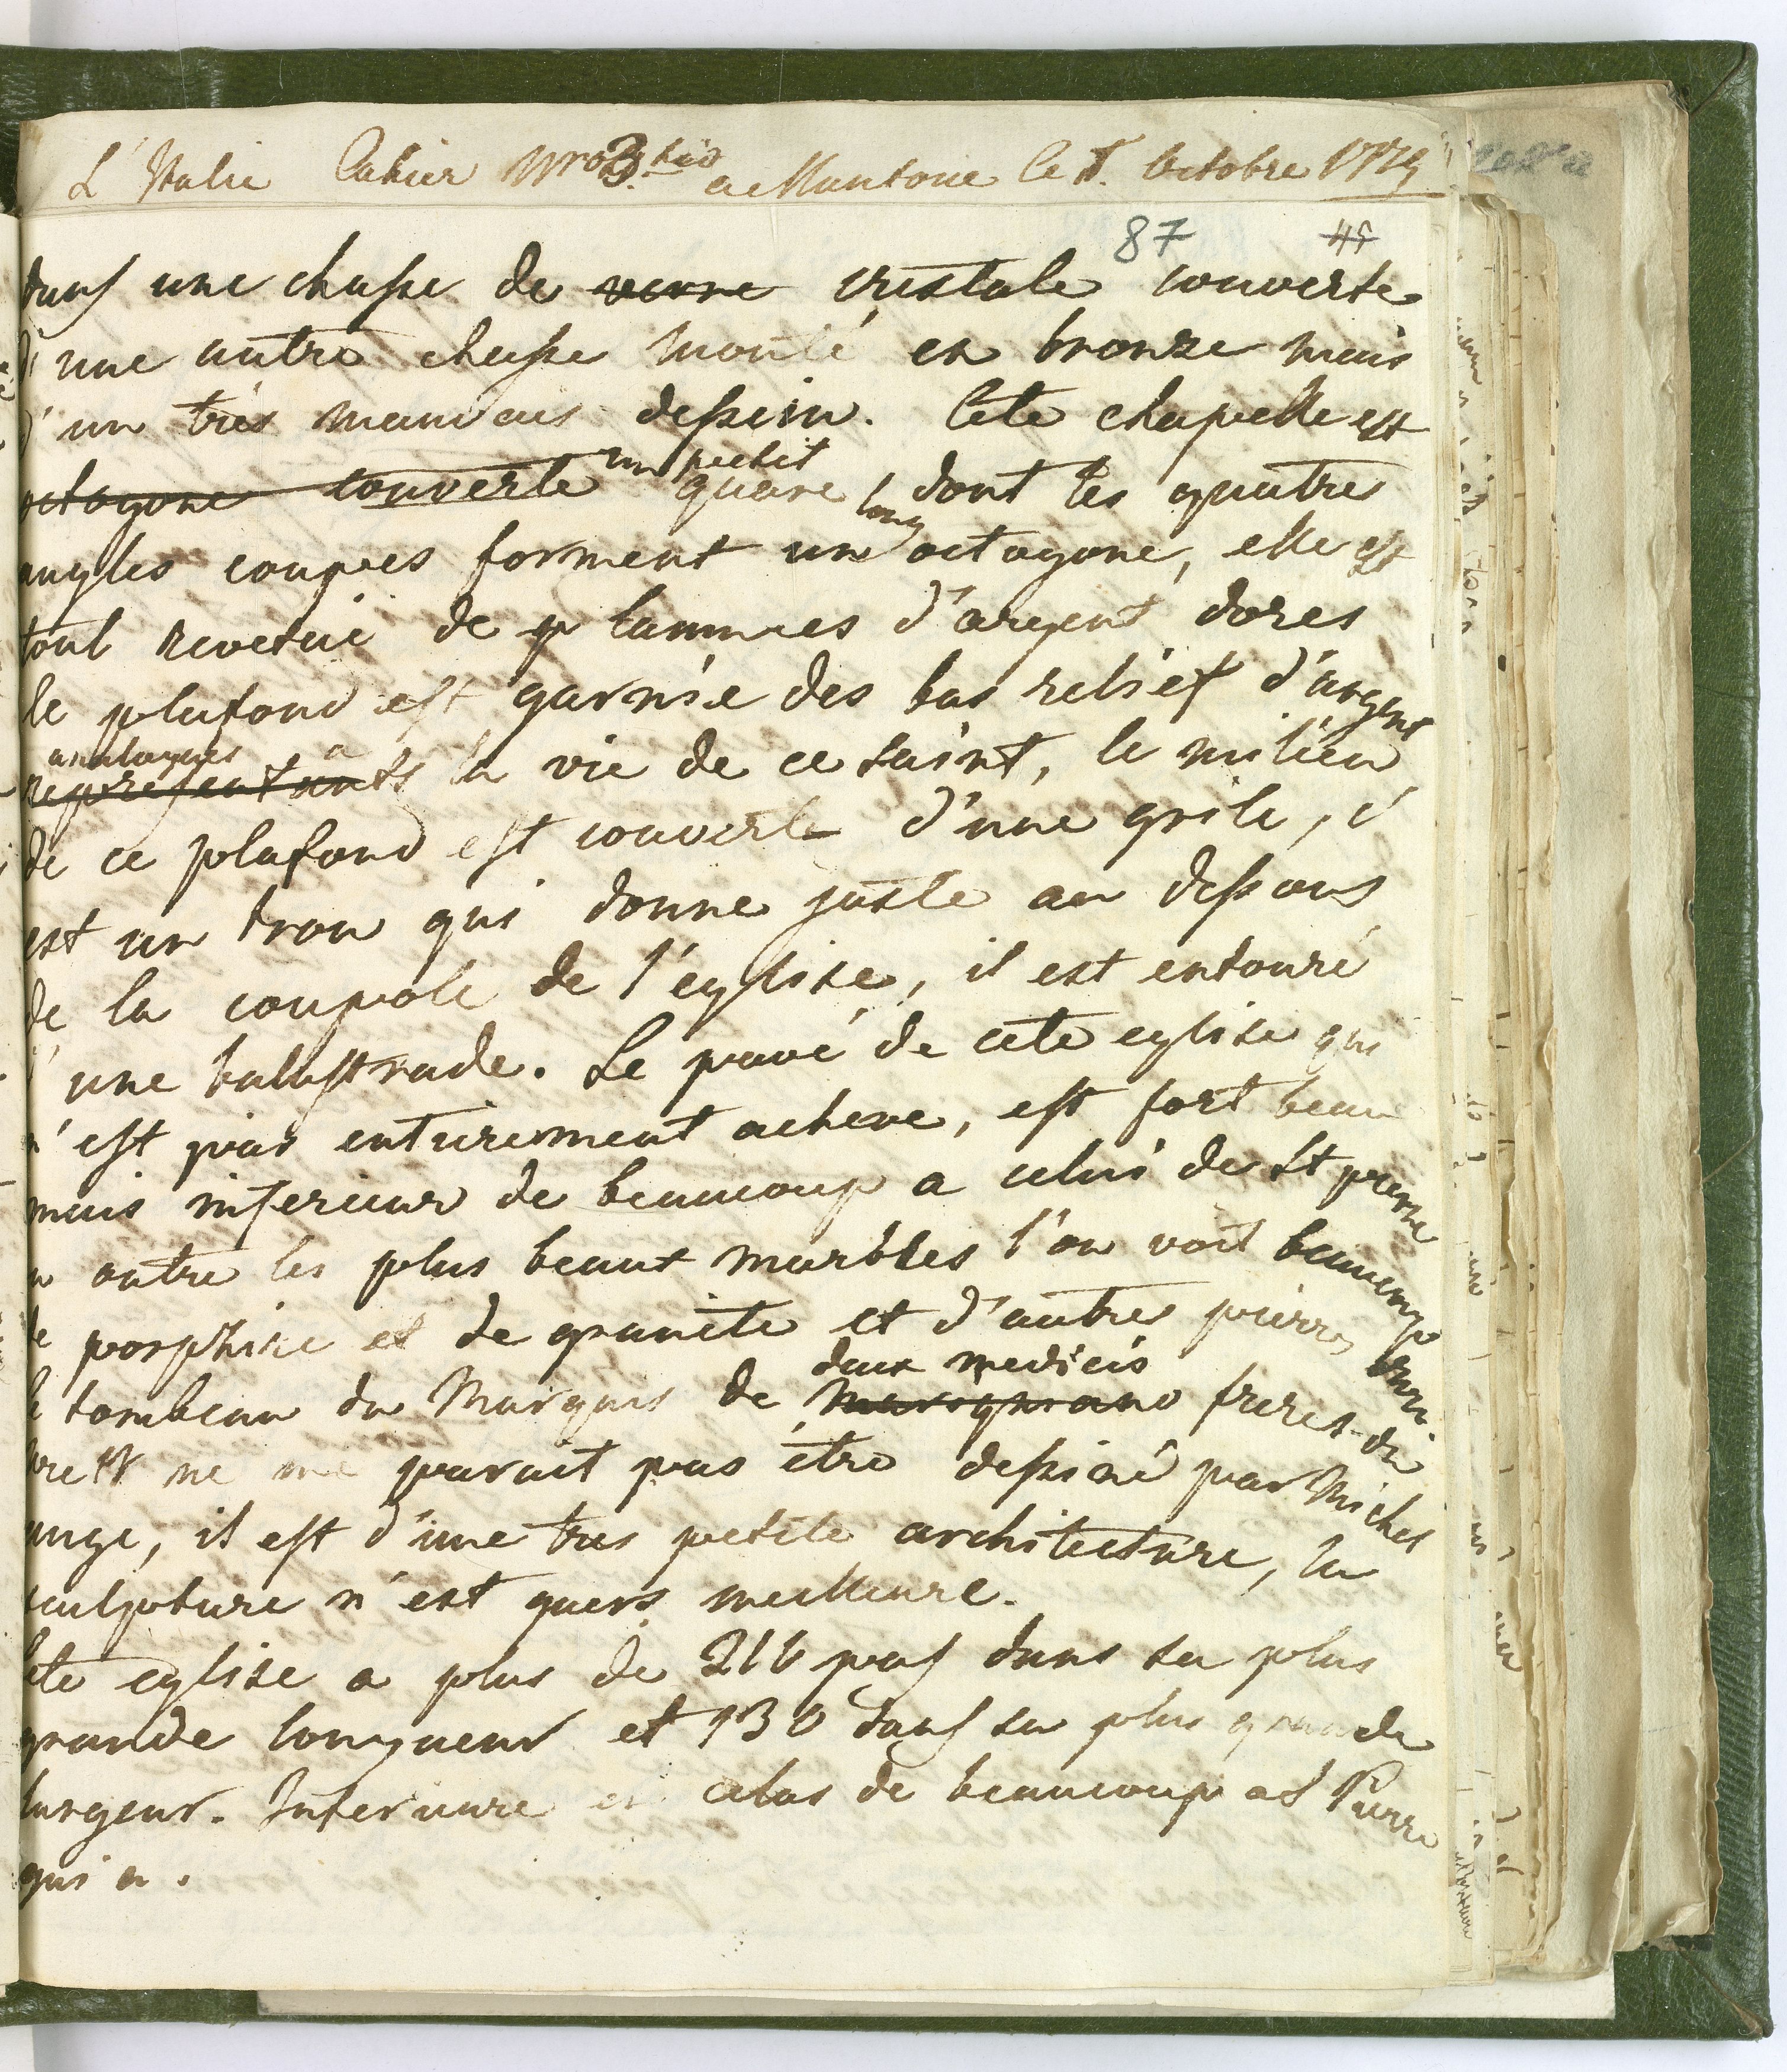 L'Italie Cahier Nro 3. tio a Mantoue le 8. Octobre 1779
87 45
dans une chasse de verre cristale couverte
d'une autre chasse monté en bronze mais
d'un très mauvais dessein. Cete chapelle est
un petit
octagone couverte quare long dont les quatres
angles coupes forment un octagone, elle est
tout revetue de p lammes d'argent dores
le plafond est garnie des bas relief d'argent
analogues a
representants la vie de ce saint, le milieu
de ce plafond est couverte d'une grile, c'
est un trou qui donne juste au dessous
de la coupole de l'eglise, il est entouré
d'une balustrade. Le pavé de cete eglise qui
n'est pas entierement acheve, est fort beau
mais inferieur de beaucoup a celui de St pierre
en outre les plus beaut marbles l'on voit beaucoup
de porphire et de granite et d'autres pierres
deux medicis
le tombeau du Marquis de Marignano freres du
ne me parait pas être dessiné par Michel
ange, il est d'une tres petite architecture, la
sculpture n'est guers meilleure.
Cete eglise a plus de 216 pas dans sa plus
grande longueur et 130 dans sa plus grande
largeur. Inferieure en celas de beaucoup a S Pierre
qui a.